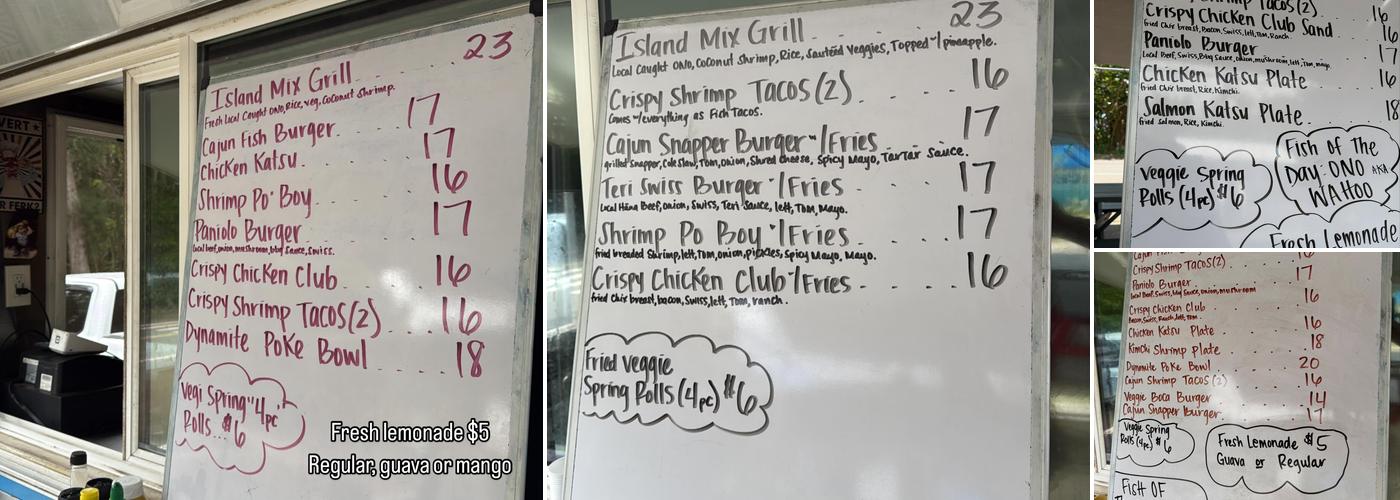 VERT
R FERK?
23
Island Mix Grill
Fresh Local Caught ONO, Rice, veg, Coconut Shrimp.
17
Cajun Fish Burger
17
Chicken Katsu
16
Shrimp Po' Boy
17
Paniolo Burger
Local beef, onion, mushroom, bbq sauce, swiss.
Crispy Chicken Club 16
Crispy Shrimp Tacos (2) 16
Dynamite Poke Bowl 18
Vegi Spring "4pc"
Rolls $6
Fresh lemonade $5
Regular, guava or mango
23
Island Mix Grill
Local Caught ONO, Coconut Shrimp, Rice, Sautéed Veggies, Topped w/ pineapple.
16
Crispy Shrimp Tacos (2)
Comes w/everything as Fish Tacos.
17
Cajun Snapper Burger w/Fries
grilled Snapper, Cole Slaw, Tom, onion, Shred cheese, Spicy Mayo, TarTar Sauce.
Teri Swiss Burger w/Fries 17
Local Hana Beef, onion, Swiss, Teri Sauce, lett, Tom, Mayo.
Shrimp Po Boy w/Fries 17
fried breaded Shrimp, lett, Tom, onion, pickles, Spicy Mayo, Mayo.
Crispy Chicken Club w/Fries 16
fried Chix breast, bacon, Swiss, lett, Tom, ranch.
Fried veggie
Spring Rolls (4pc) $6
Tacos (2) 16
Crispy Chicken Club Sand 16
fried Chix breast, Bacon, Swiss, lett, Tom, Ranch.
Paniolo Burger 17
Local Beef, Swiss, Bbq Sauce, onion, mushroom, lett, Tom, mayo.
Chicken Katsu Plate 16
fried Chix breast, Rice, Kimchi.
Salmon Katsu Plate 18
fried Salmon, Rice, Kimchi.
Veggie Spring
Rolls (4pc) $6
Fish of The
Day: ONO AKA
WAHOO
Fresh Lemonade
Crispy Shrimp Tacos (2)
17
Paniolo Burger
Local Beef, Swiss, bbq Sauce, onion, mushroom
16
Crispy Chicken Club
Bacon, Swiss, Ranch, lett, Tom
Chicken Katsu Plate 16
Kimchi Shrimp Plate 18
Dynamite Poke Bowl 20
Cajun Shrimp Tacos (2) 16
Veggie Boca Burger 14
Cajun Snapper Burger 17
Veggie Spring
Rolls (4pc) $6
Fresh Lemonade $5
Guava or Regular
FisH OF